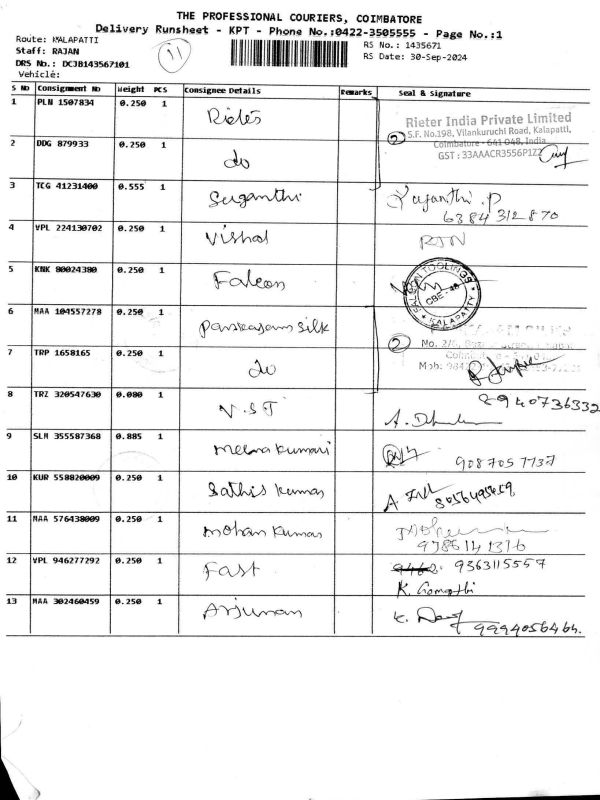 THE PROFESSIONAL COURIERS, COIMBATORE
Delivery Runsheet - KPT - Phone No.:0422-3505555 - Page No.:1
Route: KALAPATTI
Staff: RAJAN
DRS No.: DCJB143567101
Vehicle:
11
RS No.: 1435671
RS Date: 30-Sep-2024
S No Consignment No Weight PCS Consignee Details Remarks Seal & Signature
1 PLN 1507834 0.250 1 Rieter
Rieter India Private Limited
S.F. No.198, Vilankuruchi Road, Kalapatti,
Coimbature - 641 048, India
GST : 33AAACR3556P1ZZ
2
2 DDG 879933 0.250 1 do
3 TCG 41231400 0.555 1 Suganthi
6384312870
4 VPL 224130702 0.250 1 Vishal
5 KNK 80024380 0.250 1 Falcon
FALCON TOOLINGS
CBE-48
KALAPATTY
6 MAA 104557278 0.250 1 Parakasam silk
2
No. 2/6,
Mob: 984
7 TRP 1658165 0.250 1 do
8 TRZ 320547630 0.080 1 V.S.T
8940736332
9 SLM 355587368 0.885 1 meena kumari
9087057737
10 KUR 558820009 0.250 1 Sathis kumar
11 MAA 576438009 0.250 1 mohan kumar
9786141376
12 VPL 946277292 0.250 1 Fast
9363115557
K. Gomathi
13 MAA 302460459 0.250 1 Arjunan
9994056464.